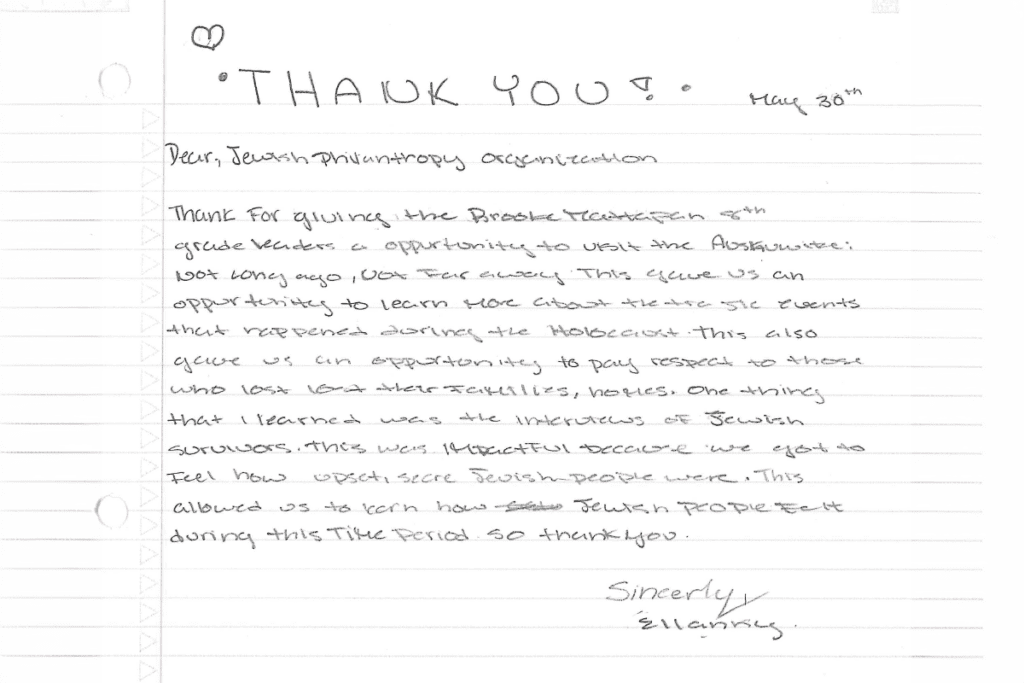 THANK YOU!
May 30th
Dear, Jewish Philantropy organization
Thank For giving the Brooke Mattapan 8th
grade leaders a oppurtunity to visit the
Not Long ago, Not Far away. This gave us an
oppurtunity to learn more about the events
that happened during the Holocaust. This also
gave us an oppurtunity to pay respect to those
who lost lost their families, homes. One thing
that I learned was the interviews of Jewish
survivors. This was impactful because we got to
Feel how upset, Jewish people were. This
allowed us to learn how Jewish people Felt
during this Time Period. So thank you.
Sincerly,